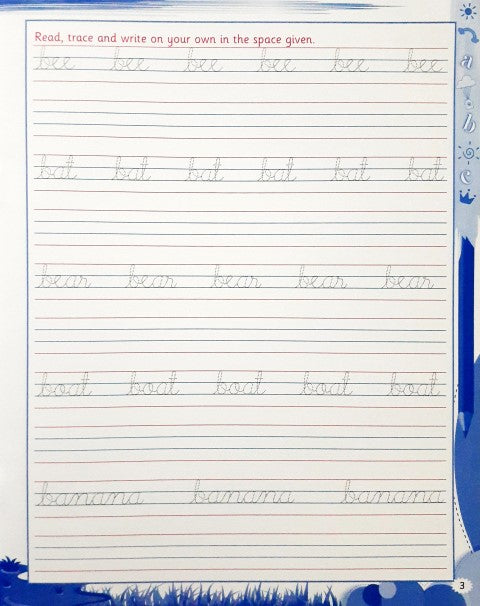 Read, trace and write on your own in the space given.
bee bee bee bee bee bee
bat bat bat bat bat bat
bear bear bear bear bear
boat boat boat boat boat
banana banana banana
a
b
c
3